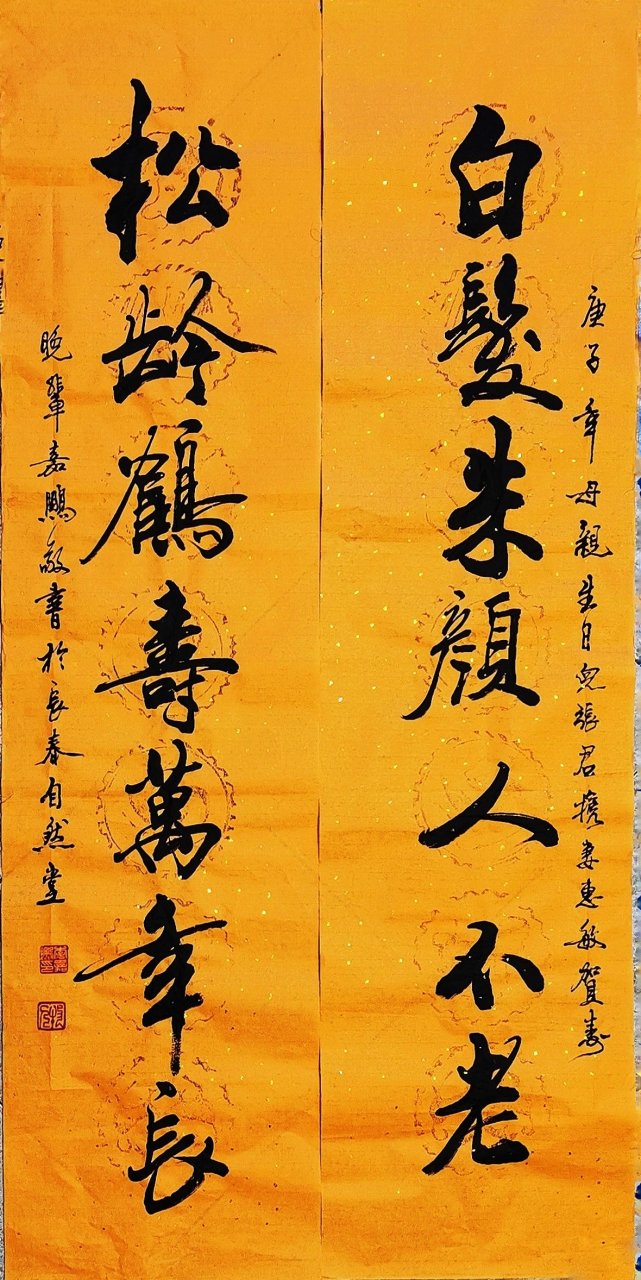 庚子年母親生日兒張君攜妻惠敏賀壽
白髮朱顏人不老
松齡鶴壽萬年長
晚輩嘉鵬敬書於長春自然堂